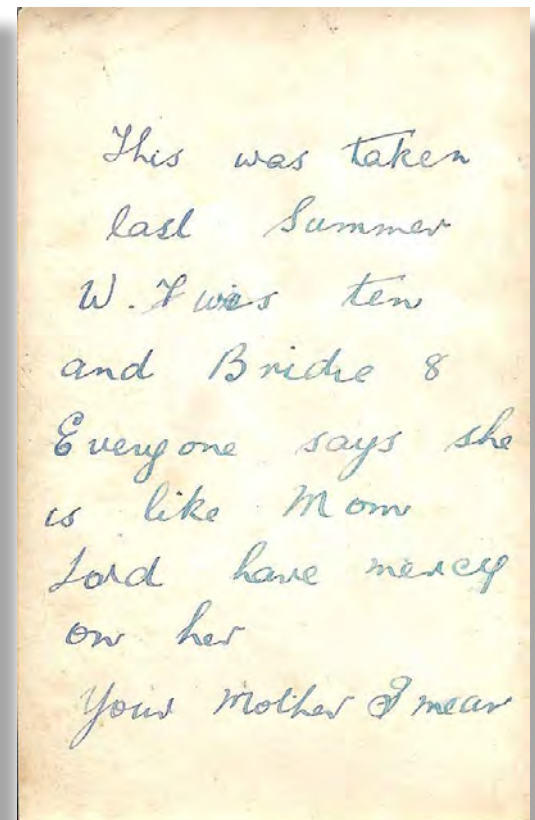 This was taken
last Summer
W. F was ten
and Bridie 8
Everyone says she
is like Mom
Lord have mercy
on her
Your Mother I mean